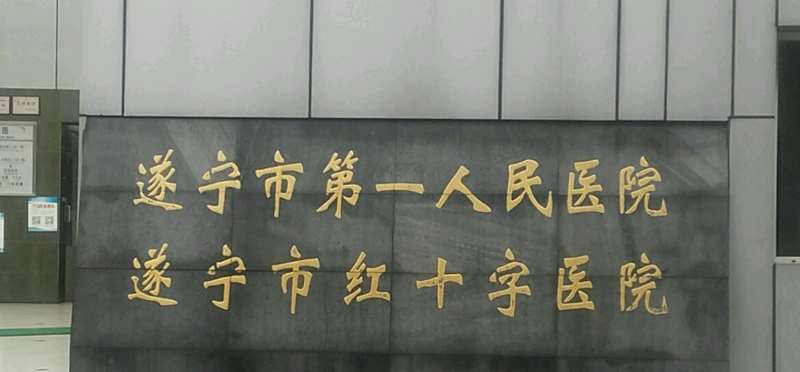 遂宁市第一人民医院
遂宁市红十字医院